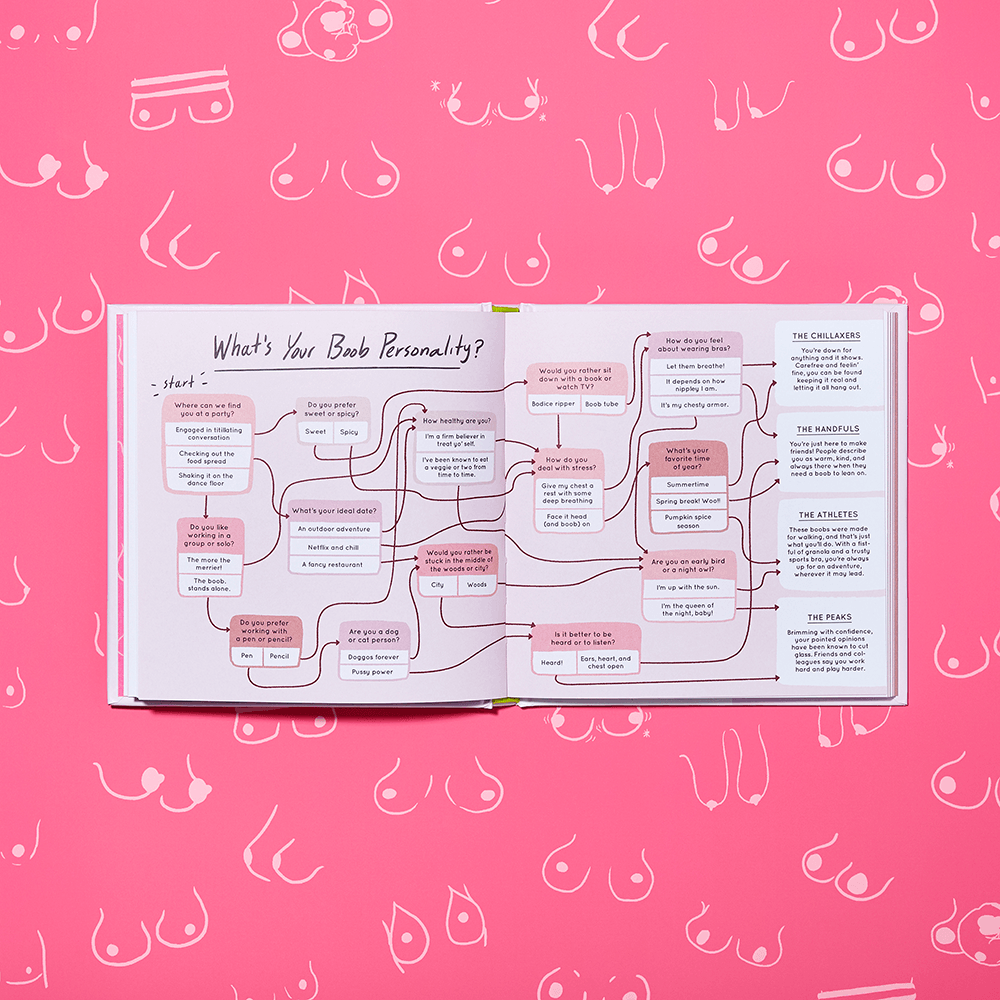 What's Your Boob Personality?
- start -
Where can we find
you at a party?
Engaged in titillating
conversation
Checking out the
food spread
Shaking it on the
dance floor
Do you prefer
sweet or spicy?
Sweet
Spicy
How healthy are you?
I'm a firm believer in
treat yo' self.
I've been known to eat
a veggie or two from
time to time.
What's your ideal date?
An outdoor adventure
Netflix and chill
A fancy restaurant
Do you like
working in a
group or solo?
The more the
merrier!
The boob.
stands alone.
Would you rather be
stuck in the middle of
the woods or city?
City
Woods
Do you prefer
working with
a pen or pencil?
Pen
Pencil
Are you a dog
or cat person?
Doggos forever
Pussy power
Would you rather sit
down with a book or
watch TV?
Bodice ripper
Boob tube
How do you feel
about wearing bras?
Let them breathe!
It depends on how
nippley I am.
It's my chesty armor.
How do you
deal with stress?
Give my chest a
rest with some
deep breathing
Face it head
(and boob) on
What's your
favorite time
of year?
Summertime
Spring break! Woo!!
Pumpkin spice
season
Are you an early bird
or a night owl?
I'm up with the sun.
I'm the queen of
the night, baby!
Is it better to be
heard or to listen?
Heard!
Ears, heart, and
chest open
THE CHILLAXERS
You're down for
anything and it shows.
Carefree and feelin'
fine, you can be found
keeping it real and
letting it all hang out.
THE HANDFULS
You're just here to make
friends! People describe
you as warm, kind, and
always there when they
need a boob to lean on.
THE ATHLETES
These boobs were made
for walking, and that's just
what you'll do. With a fist-
ful of granola and a trusty
sports bra, you're always
up for an adventure,
wherever it may lead.
THE PEAKS
Brimming with confidence,
your pointed opinions
have been known to cut
glass. Friends and col-
leagues say you work
hard and play harder.